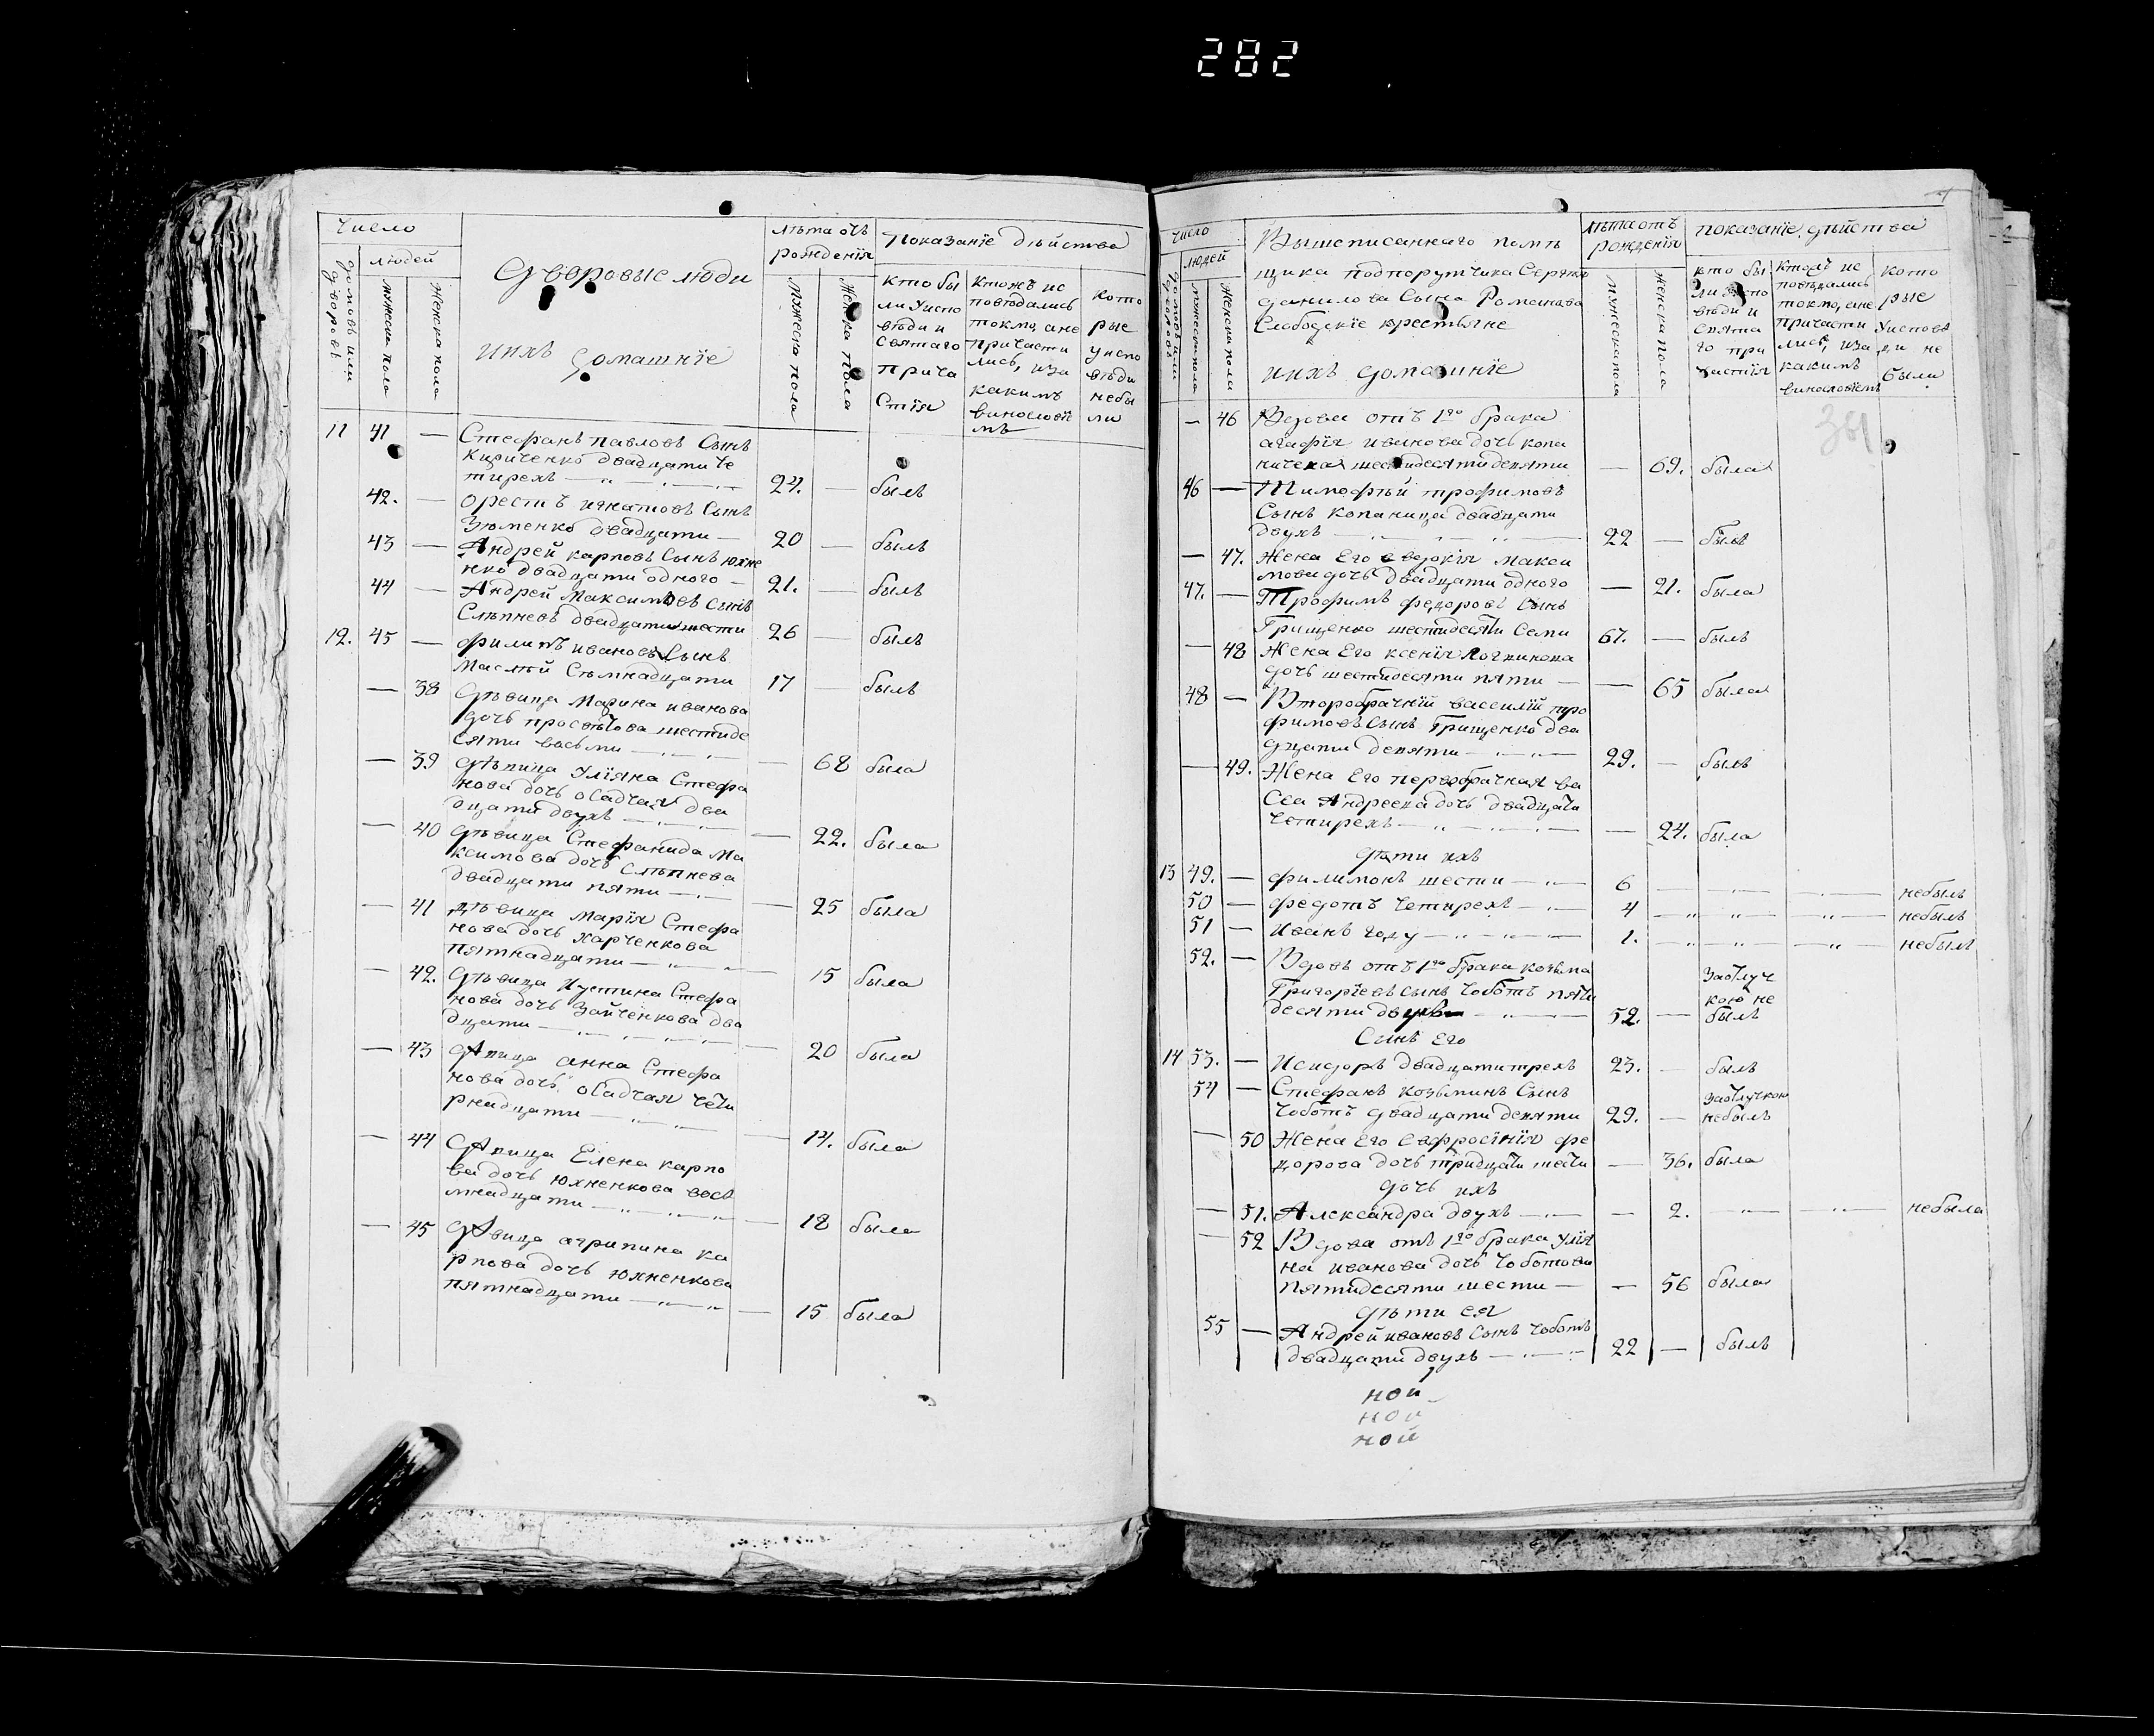 282
Число
людей
домовъ или дворовъ
мужеска пола
женска пола
Дворовые люди
ихъ домашніе
лѣта отъ
рожденія
мужеска пола
женска пола
Показаніе дѣйства
кто бы
ли Уиспо
вѣди и
Святаго
прича
Стія
Ктожъ ис
повѣдались
токмо, а не
причасти
лись, и за
какимъ
винословіе
мъ
кото
рые
уиспо
вѣди
небы
ли
11 41 — Стефанъ павловъ Сынъ
Кириченко двадцати че
тирехъ 24. — былъ
42. — Орестъ игнатовъ Сынъ
Зюменко двадцати — 20 — былъ
43 — Андрей карповъ Сынъ юхне
нко двадцати одного — 21. — былъ
44 — Андрей Максимовъ Сынъ
Слѣпневъ двадцати шести 26 — былъ
12. 45 — филипъ ивановъ Сынъ
Маслѣй Съмнадцати 17 былъ
— 38 Дѣвица Марина иванова
дочь просвѣтова шестиде
сяти восьми — 68 была
— 39 Дѣвица Уліяна Стефа
нова дочь осадчая два
дцати двухъ — 22. была
— 40 Дѣвица Стефанида Ма
ксимова дочь Слѣпнева
двадцати пяти — 25 была
— 41 Дѣвица Марія Стефа
нова дочь харченкова
пятнадцати — 15 была
— 42. Дѣвица Иустина Стефа
нова дочь Зайченкова два
дцати — 20 была
— 43 Дѣвица анна Стефа
нова дочь осадчая четы
рнадцати — 14. была
— 44 Дѣвица Елена карпо
ва дочь юхненкова вось
мнадцати — 18 была
— 45 Дѣвица агрипина ка
рпова дочь юхненкова
пятнадцати — 15 была
Число
людей
домовъ или дворовъ
мужеска пола
женска пола
Вышеписаннаго помѣ
щика подпорутчика Сергѣя
данилова Сына Романова
Слободскіе крестьяне
ихъ домашніе
лѣта отъ
рожденія
мужеска пола
женска пола
показаніе дѣйства
кто бы
ли
вѣди и
Святаго
причастія
Ктожъ ис
повѣдались
токмо, а не
причасти
лись, и за
какимъ
винословіемъ
кото
рые
Уисповѣ
ди не
были
— 46 Вдова отъ 1го брака
агафія иванова дочь копа
ничека шестидесяти девяти — 69. была
46 — Тимофѣй трофимовъ
Сынъ копаница двадцати
двухъ 22 — былъ
— 47. Жена Его евдокія макси
мова дочь двадцати одного — 21. была
47. — Трофимъ федоровъ Сынъ
Грищенко шестидесяти Семи 67. — былъ
— 48 Жена Его ксенія логвинова
дочь шестидесяти пяти — 65 была
48 — Второбрачній василій тро
фимовъ Сынъ Грищенко два
дцати девяти 29. — былъ
— 49. Жена Его первобрачная ва
сса Андреева дочь двадцати
четирехъ — 24. была
Дѣти ихъ
13 49. — филимонъ шести 6 небылъ
50 — федотъ четирехъ 4 небылъ
51 — иванъ году 1. небылъ
52. — Вдовъ отъ 1го брака козьма
Григоріевъ Сынъ Чоботъ пяти
десяти двухъ 52. — Заотлуч
кою не
былъ
Сынъ Его
14 53. — Исидоръ двадцати трехъ 23. — былъ
54 — Стефанъ козьминъ Сынъ
Чоботъ двадцати девяти 29. — Заотлучкою
небылъ
— 50 Жена Его Евфросінія фе
дорова дочь тридцати шести — 36. была
Дочь ихъ
— 51. Александра двухъ — 2. небыла
— 52 Вдова отъ 1го брака улія
на иванова дочь Чоботова
пятидесяти шести — 56 была
Дѣти ея
55 — Андрей ивановъ Сынъ Чоботъ
двадцати двухъ 22 — былъ
ной
ной
ной